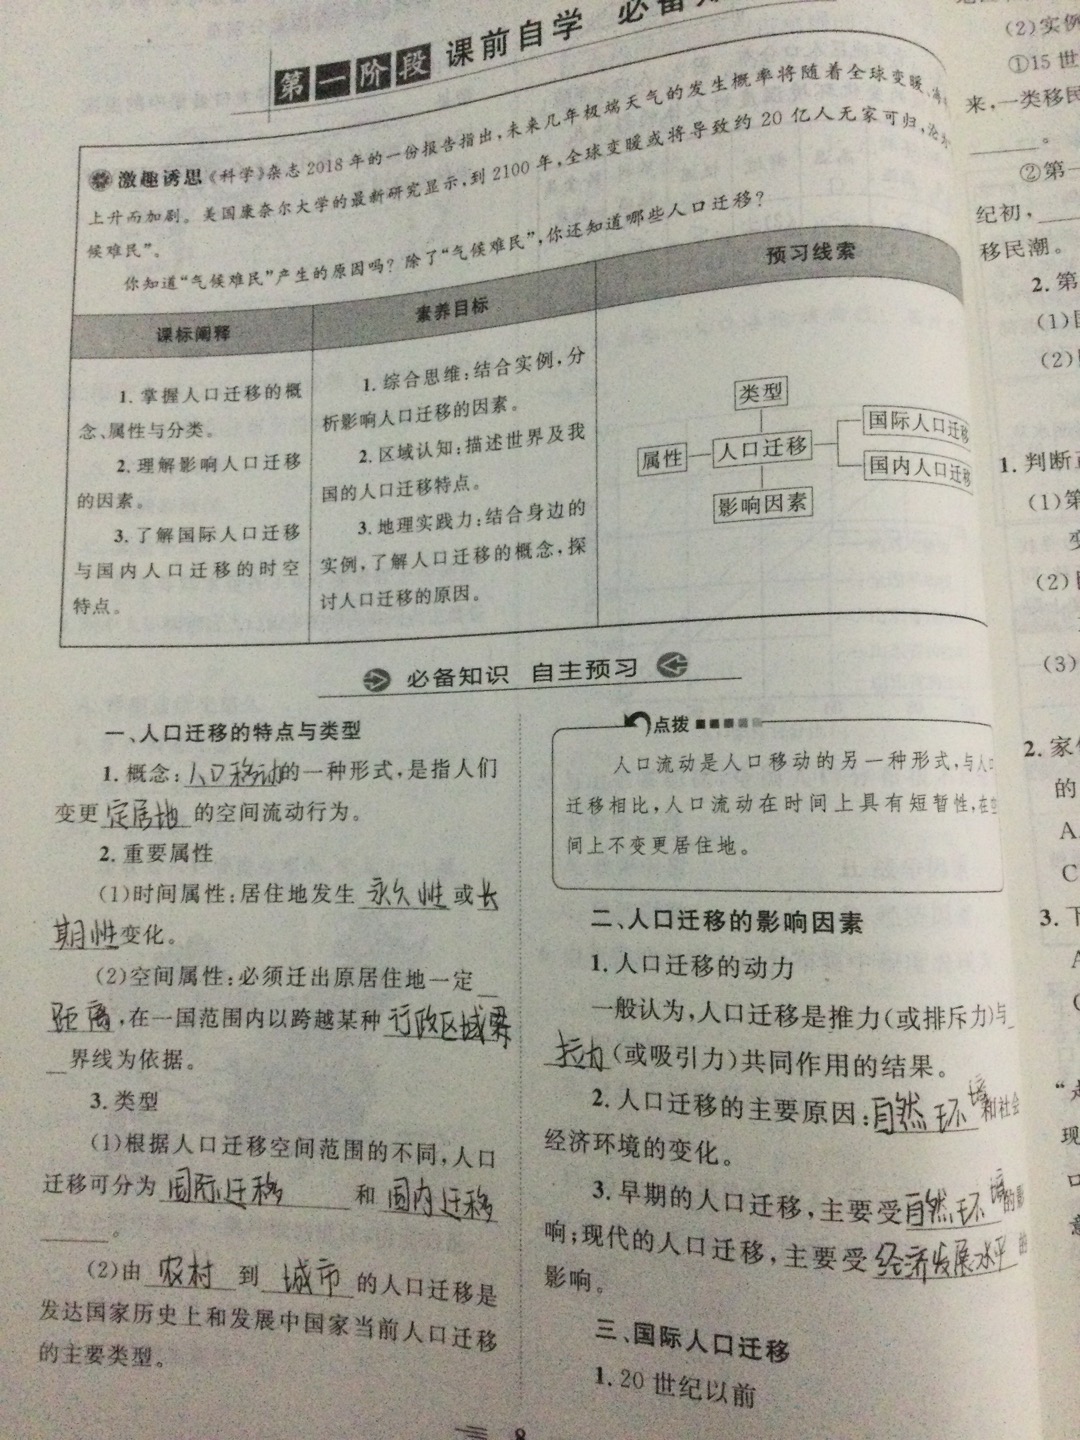 第一阶段 课前自学 必备
激趣诱思 《科学》杂志2018年的一份报告指出,未来几年极端天气的发生概率将随着全球变暖、
上升而加剧。美国康奈尔大学的最新研究显示,到2100年,全球变暖或将导致约20亿人无家可归,
候难民”。
你知道“气候难民”产生的原因吗?除了“气候难民”,你还知道哪些人口迁移?
课标阐释
1.掌握人口迁移的概
念、属性与分类。
2.理解影响人口迁移
的因素。
3.了解国际人口迁移
与国内人口迁移的时空
特点。
素养目标
1.综合思维:结合实例,分
析影响人口迁移的因素。
2.区域认知:描述世界及我
国的人口迁移特点。
3.地理实践力:结合身边的
实例,了解人口迁移的概念,探
讨人口迁移的原因。
预习线索
类型
属性
人口迁移
国际人口迁移
国内人口迁移
影响因素
必备知识 自主预习
一、人口迁移的特点与类型
1.概念:人口移动的一种形式,是指人们
变更定居地的空间流动行为。
2.重要属性
(1)时间属性:居住地发生永久性或长
期性变化。
(2)空间属性:必须迁出原居住地一定
距离,在一国范围内以跨越某种行政区域界
界线为依据。
3.类型
(1)根据人口迁移空间范围的不同,人口
迁移可分为国际迁移和国内迁移
。
(2)由农村到城市的人口迁移是
发达国家历史上和发展中国家当前人口迁移
的主要类型。
点拨
人口流动是人口移动的另一种形式,与人口
迁移相比,人口流动在时间上具有短暂性,在空
间上不变更居住地。
二、人口迁移的影响因素
1.人口迁移的动力
一般认为,人口迁移是推力(或排斥力)与
拉力(或吸引力)共同作用的结果。
2.人口迁移的主要原因:自然环境和社会
经济环境的变化。
3.早期的人口迁移,主要受自然环境的影
响;现代的人口迁移,主要受经济发展水平的
影响。
三、国际人口迁移
1.20世纪以前
8
(2)实例
①15世
来,一类移民
。
②第一
纪初,
移民潮。
2.第
(1)
(2)
1.判断
(1)第
(2)
(3)
2.家
的
A
C
3.下
现
口
意